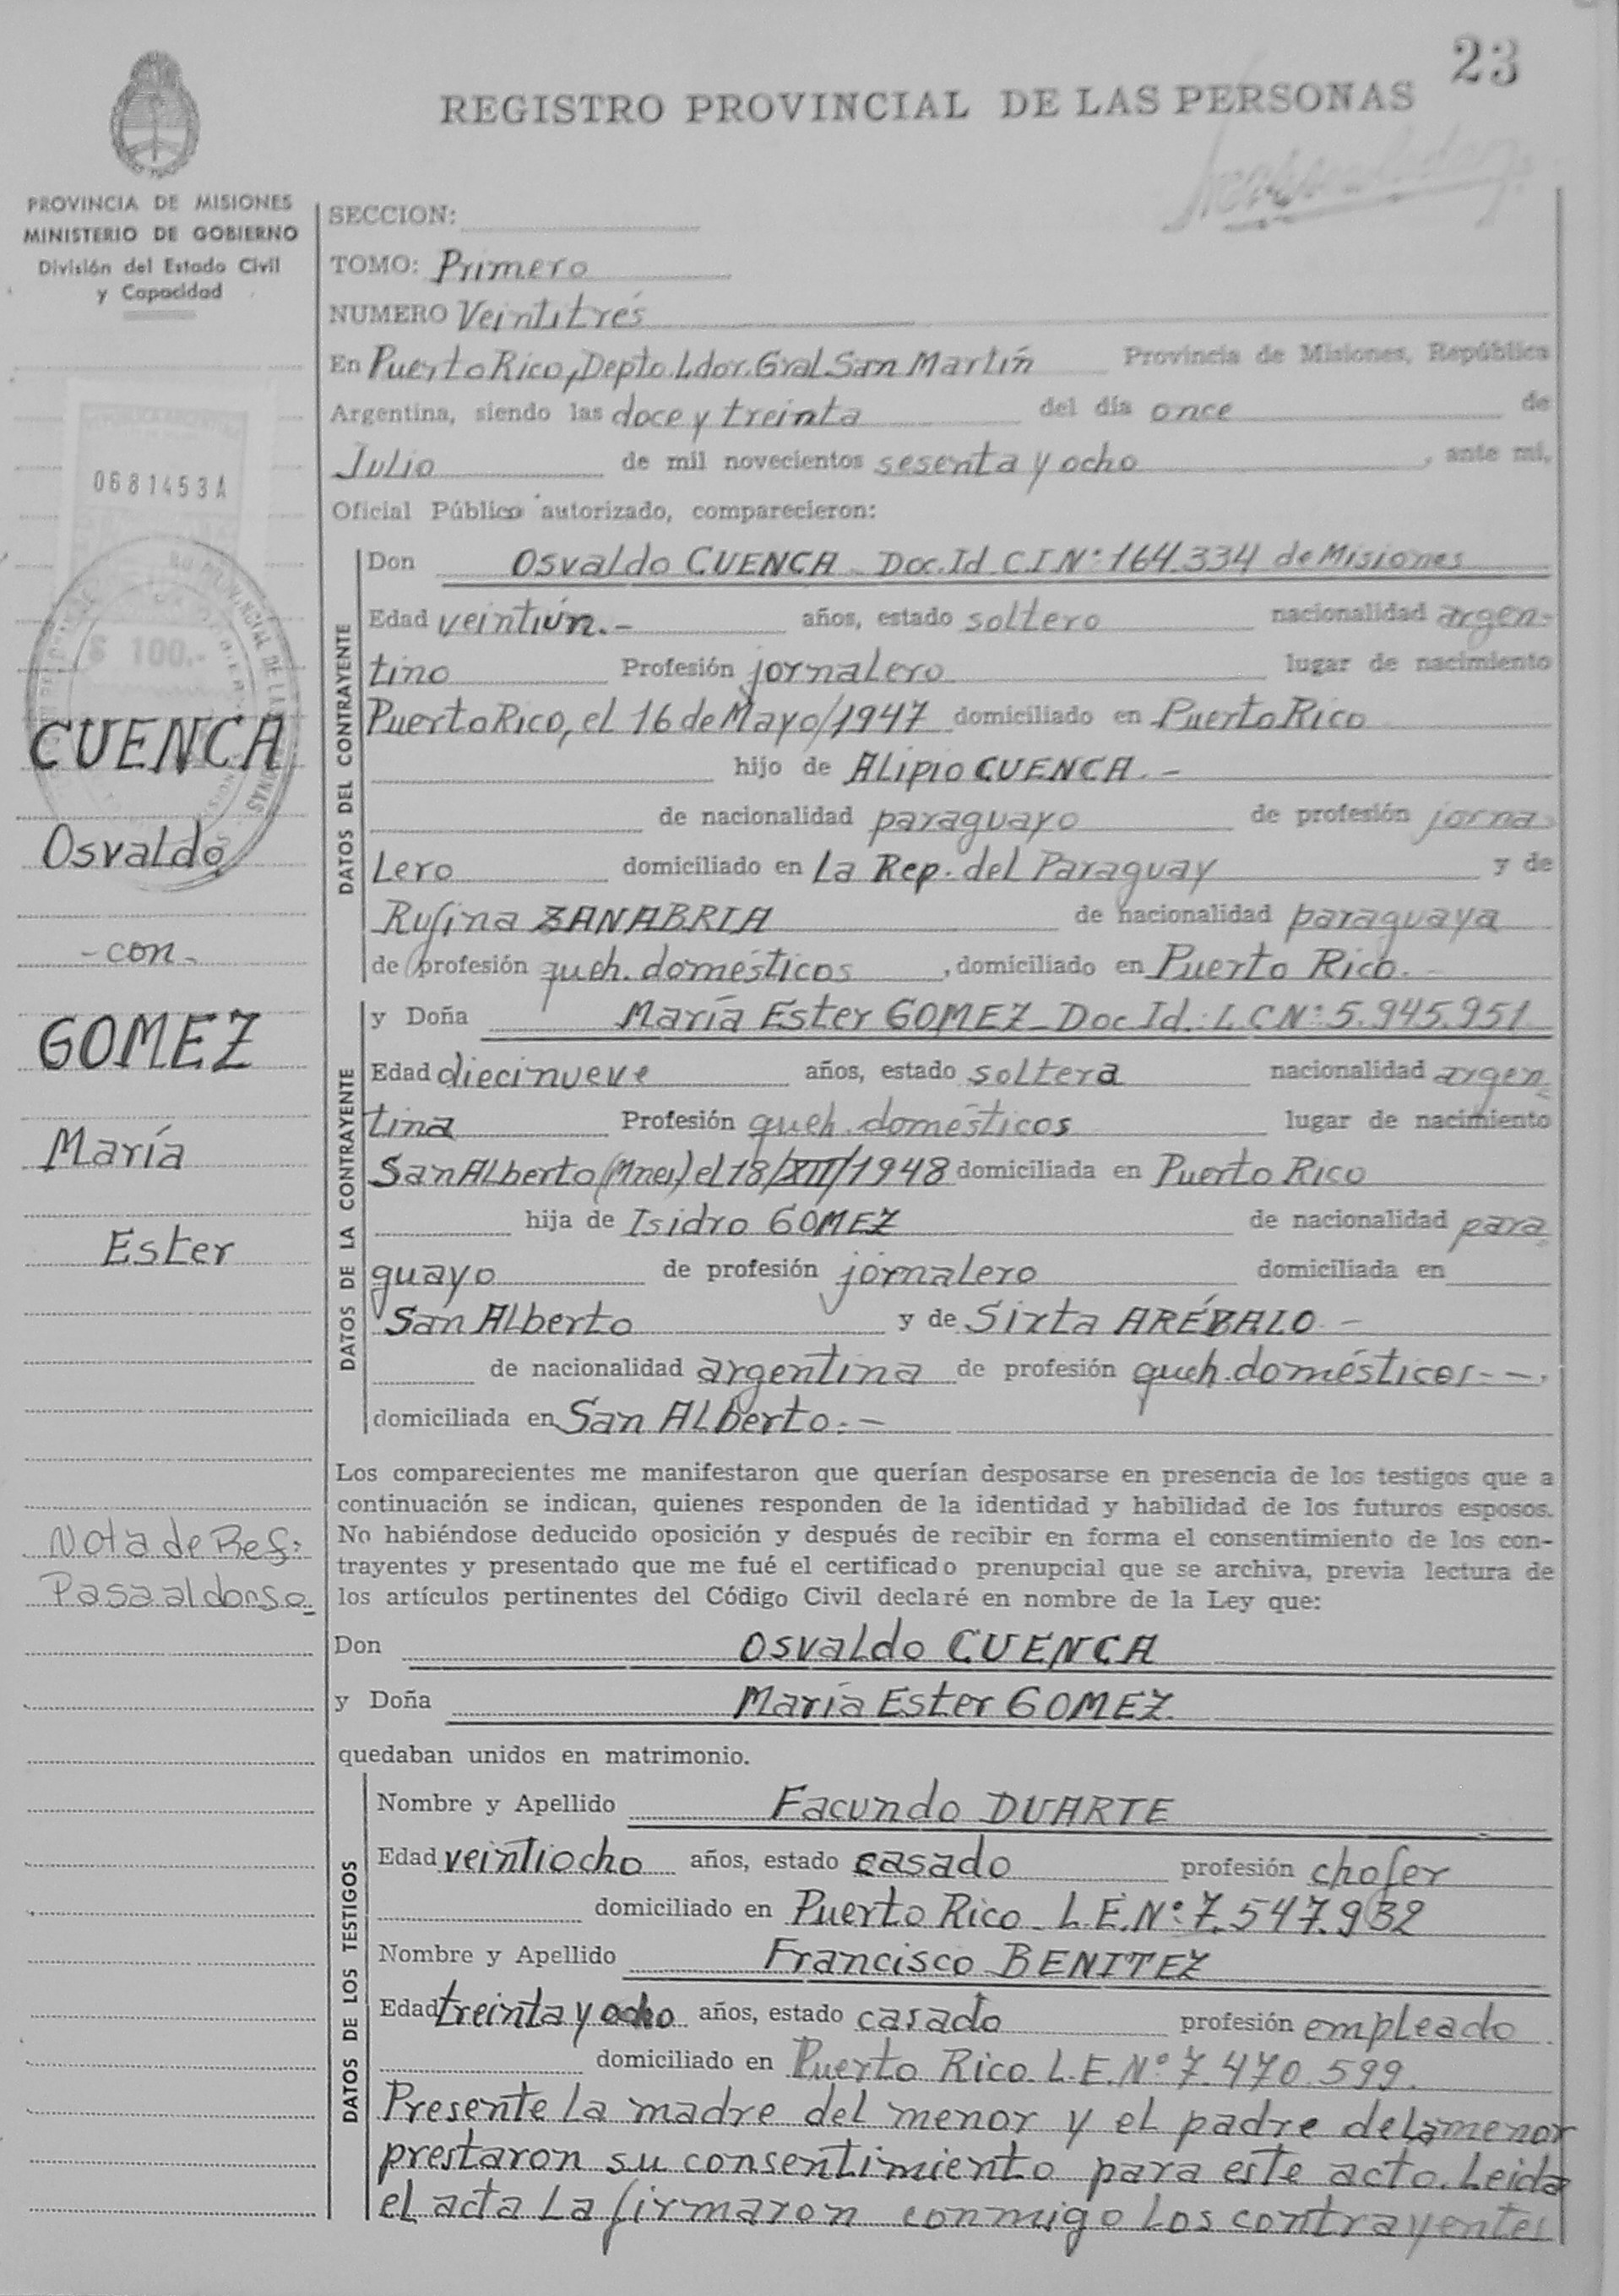 23
REGISTRO PROVINCIAL DE LAS PERSONAS
PROVINCIA DE MISIONES
MINISTERIO DE GOBIERNO
División del Estado Civil
y Capacidad
0681453A
$ 100.-
CUENCA
Osvaldo
-con-
GOMEZ
María
Ester
Nota de Ref:
Pasa al dorso
SECCION:
TOMO: Primero
NUMERO Veintitrés
En Puerto Rico, Depto. Ldor. Gral. San Martín Provincia de Misiones, República
Argentina, siendo las doce y treinta del día once de
Julio de mil novecientos sesenta y ocho, ante mi,
Oficial Público autorizado, comparecieron:
DATOS DEL CONTRAYENTE
Don Osvaldo CUENCA Doc. Id. C.I Nº 164.334 de Misiones
Edad veintiún.- años, estado soltero nacionalidad argen-
tino Profesión jornalero lugar de nacimiento
Puerto Rico, el 16 de Mayo/1947 domiciliado en Puerto Rico
hijo de Alipio CUENCA.-
de nacionalidad paraguayo de profesión jorna
lero domiciliado en La Rep. del Paraguay y de
Rufina ZANABRIA de nacionalidad paraguaya
de profesión queh. domésticos, domiciliado en Puerto Rico.
DATOS DE LA CONTRAYENTE
y Doña María Ester GOMEZ Doc Id.: L C Nº 5.945.951
Edad diecinueve años, estado soltera nacionalidad argen
tina Profesión queh. domésticos lugar de nacimiento
San Alberto (Mnes) el 18/XII/1948 domiciliada en Puerto Rico
hija de Isidro GOMEZ de nacionalidad para
guayo de profesión jornalero domiciliada en
San Alberto y de Sixta ARÉBALO -
de nacionalidad argentina de profesión queh. domésticos.-
domiciliada en San Alberto.-
Los comparecientes me manifestaron que querían desposarse en presencia de los testigos que a
continuación se indican, quienes responden de la identidad y habilidad de los futuros esposos.
No habiéndose deducido oposición y después de recibir en forma el consentimiento de los con-
trayentes y presentado que me fué el certificado prenupcial que se archiva, previa lectura de
los artículos pertinentes del Código Civil declaré en nombre de la Ley que:
Don Osvaldo CUENCA
y Doña María Ester GOMEZ
quedaban unidos en matrimonio.
DATOS DE LOS TESTIGOS
Nombre y Apellido Facundo DUARTE
Edad veintiocho años, estado casado profesión chofer
domiciliado en Puerto Rico L.E. Nº 7.547.932
Nombre y Apellido Francisco BENITEZ
Edad treinta y ocho años, estado casado profesión empleado
domiciliado en Puerto Rico. L.E. Nº 7.470.599.
Presente la madre del menor y el padre de la menor
prestaron su consentimiento para este acto. Leida
el acta la firmaron conmigo los contrayentes